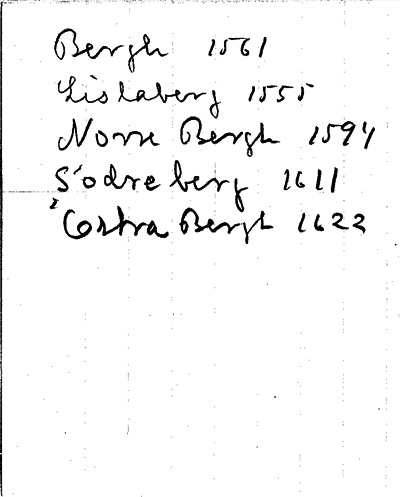 Bergh 1561
Lislaberg 1555
Norre Bergh 1594
Södreberg 1611
Östra Bergh 1622